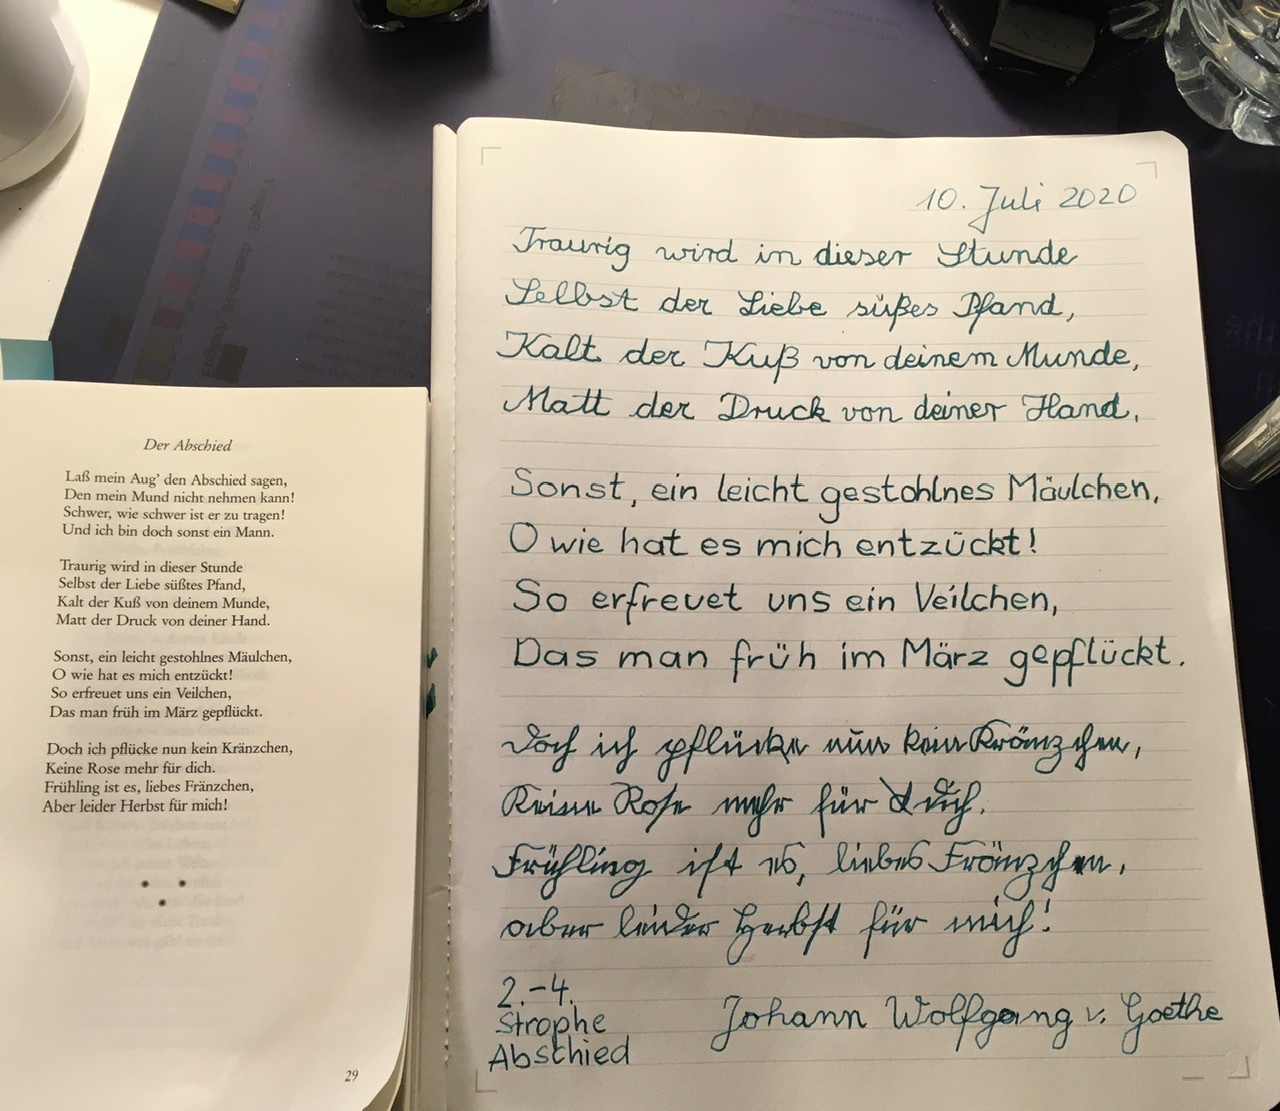 Der Abschied
Laß mein Aug' den Abschied sagen,
Den mein Mund nicht nehmen kann!
Schwer, wie schwer ist er zu tragen!
Und ich bin doch sonst ein Mann.
Traurig wird in dieser Stunde
Selbst der Liebe süßtes Pfand,
Kalt der Kuß von deinem Munde,
Matt der Druck von deiner Hand.
Sonst, ein leicht gestohlnes Mäulchen,
O wie hat es mich entzückt!
So erfreuet uns ein Veilchen,
Das man früh im März gepflückt.
Doch ich pflücke nun kein Kränzchen,
Keine Rose mehr für dich.
Frühling ist es, liebes Fränzchen,
Aber leider Herbst für mich!
29
10. Juli 2020
Traurig wird in dieser Stunde
Selbst der Liebe süßes Pfand,
Kalt der Kuß von deinem Munde,
Matt der Druck von deiner Hand.
Sonst, ein leicht gestohlnes Mäulchen,
O wie hat es mich entzückt!
So erfreuet uns ein Veilchen,
Das man früh im März gepflückt.
Doch ich pflücke nun kein Kränzchen,
Keine Rose mehr für dich.
Frühling ist es, liebes Fränzchen,
aber leider Herbst für mich!
2.-4.
Strophe
Abschied
Johann Wolfgang v. Goethe